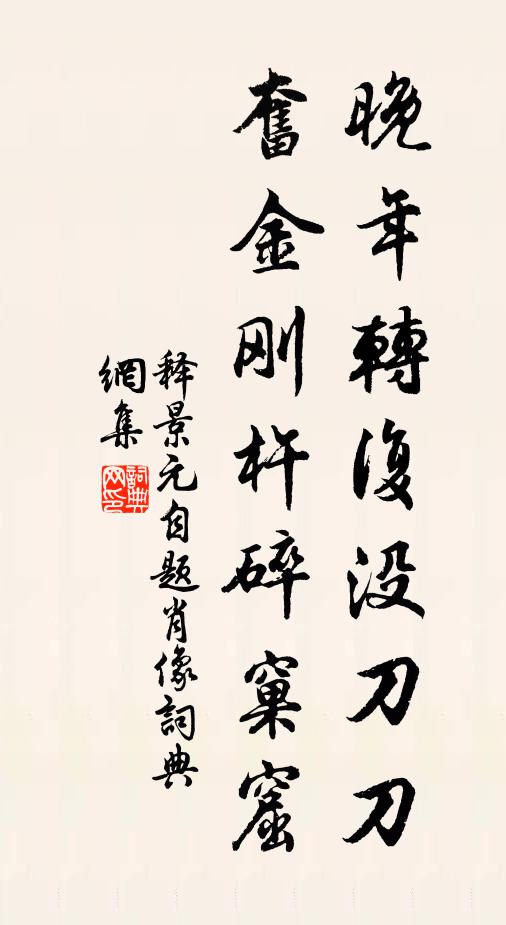 晚年轉復没刀刀
奮金刚杵碎窠窟
释景元自题肖像詞典
網集
詞典
网印